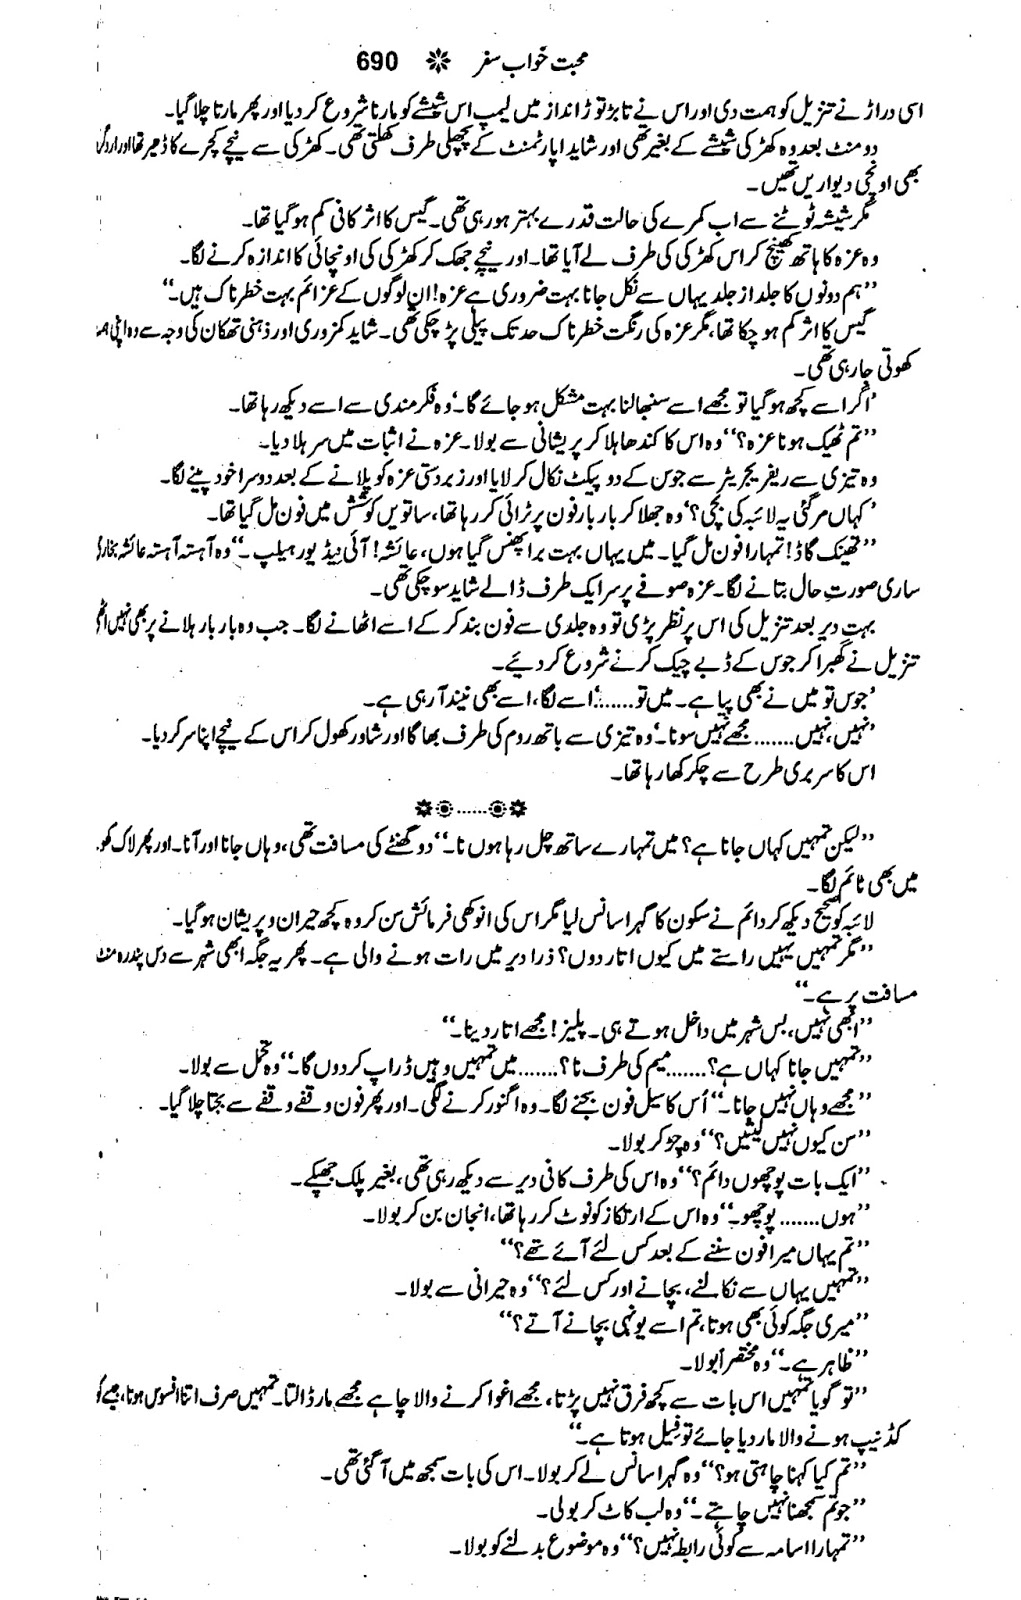 محبت خواب سفر ❋ 690
اسی دراڑ نے تنزیل کو ہمت دی اور اس نے تابڑ توڑ انداز میں لیمپ اس شیشے کو مارنا شروع کر دیا اور پھر مارتا چلا گیا۔
دو منٹ بعد وہ کھڑکی شیشے کے بغیر تھی اور شاید اپارٹمنٹ کے پچھلی طرف کھلتی تھی۔ کھڑکی سے نیچے کچرے کا ڈھیر تھا اور اردگر
بھی اونچی دیواریں تھیں۔
مگر شیشہ ٹوٹنے سے اب کمرے کی حالت قدرے بہتر ہو رہی تھی۔ گیس کا اثر کافی کم ہو گیا تھا۔
وہ عزہ کا ہاتھ کھینچ کر اس کھڑکی کی طرف لے آیا تھا۔ اور نیچے جھک کر کھڑکی کی اونچائی کا اندازہ کرنے لگا۔
’’ہم دونوں کا جلد از جلد یہاں سے نکل جانا بہت ضروری ہے عزہ! ان لوگوں کے عزائم بہت خطرناک ہیں۔‘‘
گیس کا اثر کم ہو چکا تھا، مگر عزہ کی رنگت خطرناک حد تک پیلی پڑ چکی تھی۔ شاید کمزوری اور ذہنی تھکان کی وجہ سے وہ اپنی
کھوتی جا رہی تھی۔
’اگر اسے کچھ ہو گیا تو مجھے اسے سنبھالنا بہت مشکل ہو جائے گا۔‘ وہ فکرمندی سے اسے دیکھ رہا تھا۔
’’تم ٹھیک ہو نا عزہ؟‘‘ وہ اس کا کندھا ہلا کر پریشانی سے بولا۔ عزہ نے اثبات میں سر ہلا دیا۔
وہ تیزی سے ریفریجریٹر سے جوس کے دو پیکٹ نکال کر لایا اور زبردستی عزہ کو پلانے کے بعد دوسرا خود پینے لگا۔
’کہاں مر گئی یہ لائبہ کی بچی؟‘ وہ جھلا کر بار بار فون پر ٹرائی کر رہا تھا، ساتویں کوشش میں فون مل گیا تھا۔
’’تھینک گاڈ! تمہارا فون مل گیا۔ میں یہاں بہت برا پھنس گیا ہوں، عائشہ! آئی نیڈ یور ہیلپ۔‘‘ وہ آہستہ آہستہ عائشہ بخاری
ساری صورتِ حال بتانے لگا۔ عزہ صوفے پر سر ایک طرف ڈالے شاید سو چکی تھی۔
بہت دیر بعد تنزیل کی اس پر نظر پڑی تو وہ جلدی سے فون بند کر کے اسے اٹھانے لگا۔ جب وہ بار بار ہلانے پر بھی نہیں اٹھی
تنزیل نے گھبرا کر جوس کے ڈبے چیک کرنے شروع کر دیئے۔
’جوس تو میں نے بھی پیا ہے۔ میں تو......‘ اسے لگا، اسے بھی نیند آ رہی ہے۔
’نہیں، نہیں....... مجھے نہیں سونا۔‘ وہ تیزی سے باتھ روم کی طرف بھاگا اور شاور کھول کر اس کے نیچے اپنا سر کر دیا۔
اس کا سر بری طرح سے چکر کھا رہا تھا۔
❋◉......◉❋
’’لیکن تمہیں کہاں جانا ہے؟ میں تمہارے ساتھ چل رہا ہوں نا۔‘‘ دو گھنٹے کی مسافت تھی، وہاں جانا اور آنا۔ اور پھر لاک کھو
میں بھی ٹائم لگا۔
لائبہ کو صحیح دیکھ کر دائم نے سکون کا گہرا سانس لیا مگر اس کی انوکھی فرمائش سن کر وہ کچھ حیران و پریشان ہو گیا۔
’’مگر تمہیں یہیں راستے میں کیوں اتار دوں؟ ذرا دیر میں رات ہونے والی ہے۔ پھر یہ جگہ ابھی شہر سے دس پندرہ منٹ
مسافت پر ہے۔‘‘
’’ابھی نہیں، بس شہر میں داخل ہوتے ہی۔ پلیز! مجھے اتار دینا۔‘‘
’’تمہیں جانا کہاں ہے؟....... میم کی طرف نا؟....... میں تمہیں وہیں ڈراپ کر دوں گا۔‘‘ وہ تحمل سے بولا۔
’’مجھے وہاں نہیں جانا۔‘‘ اُس کا سیل فون بجنے لگا۔ وہ اگنور کرنے لگی۔ اور پھر فون وقفے وقفے سے بجتا چلا گیا۔
’’سن کیوں نہیں لیتیں؟‘‘ وہ چڑ کر بولا۔
’’ایک بات پوچھوں دائم؟‘‘ وہ اس کی طرف کافی دیر سے دیکھ رہی تھی، بغیر پلک جھپکے۔
’’ہوں....... پوچھو۔‘‘ وہ اس کے ارتکاز کو نوٹ کر رہا تھا، انجان بن کر بولا۔
’’تم یہاں میرا فون سننے کے بعد کس لئے آئے تھے؟‘‘
’’تمہیں یہاں سے نکالنے، بچانے اور کس لئے؟‘‘ وہ حیرانی سے بولا۔
’’میری جگہ کوئی بھی ہوتا، تم اسے یونہی بچانے آتے؟‘‘
’’ظاہر ہے۔‘‘ وہ مختصراً بولا۔
’’تو گویا تمہیں اس بات سے کچھ فرق نہیں پڑتا، مجھے اغوا کرنے والا چاہے مجھے مار ڈالتا۔ تمہیں صرف اتنا افسوس ہوتا، جیسے کو
کڈنیپ ہونے والا مار دیا جائے تو فِیل ہوتا ہے۔‘‘
’’تم کیا کہنا چاہتی ہو؟‘‘ وہ گہرا سانس لے کر بولا۔ اس کی بات سمجھ میں آ گئی تھی۔
’’جو تم سمجھنا نہیں چاہتے۔‘‘ وہ لب کاٹ کر بولی۔
’’تمہارا اسامہ سے کوئی رابطہ نہیں؟‘‘ وہ موضوع بدلنے کو بولا۔